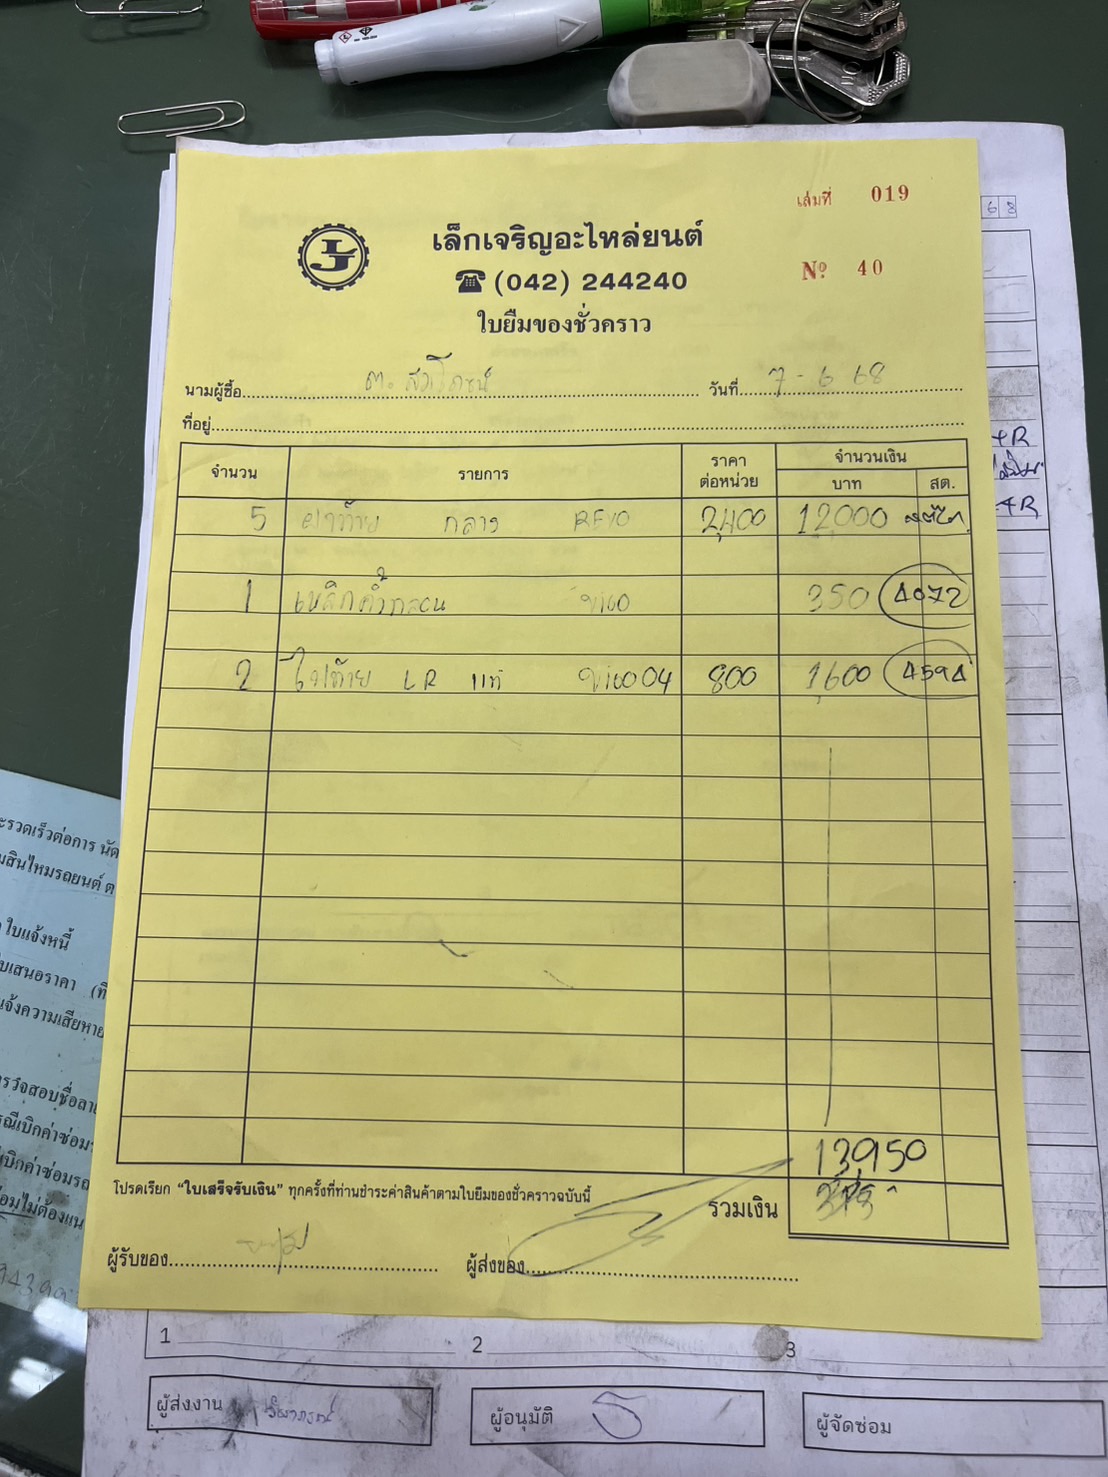 เล่มที่ 019
เล็กเจริญอะไหล่ยนต์
(042) 244240
№ 40
ใบยืมของชั่วคราว
นามผู้ซื้อ วันที่ 7-6 68
ที่อยู่
จำนวน รายการ ราคาต่อหน่วย จำนวนเงิน
บาท สต.
5 ฝาท้าย กลาง REVO 2,400 12,000
1 vigo 350 4072
2 ไฟท้าย LR แท้ vigo 04 800 1,600 4594
13,950
โปรดเรียก “ใบเสร็จรับเงิน” ทุกครั้งที่ท่านชำระค่าสินค้าตามใบยืมของชั่วคราวฉบับนี้
รวมเงิน
ผู้รับของ ผู้ส่งของ
6 8
ะรวดเร็วต่อการ นัด
มสินไหมรถยนต์ ต
ใบแจ้งหนี้
บเสนอราคา (ที่
แจ้งความเสียหาย
ณีเบิกค่าซ่อม
เบิกค่าซ่อมรถ
ซ่อมไม่ต้องแน
1 2 3
ผู้ส่งงาน
ผู้อนุมัติ
ผู้จัดซ่อม